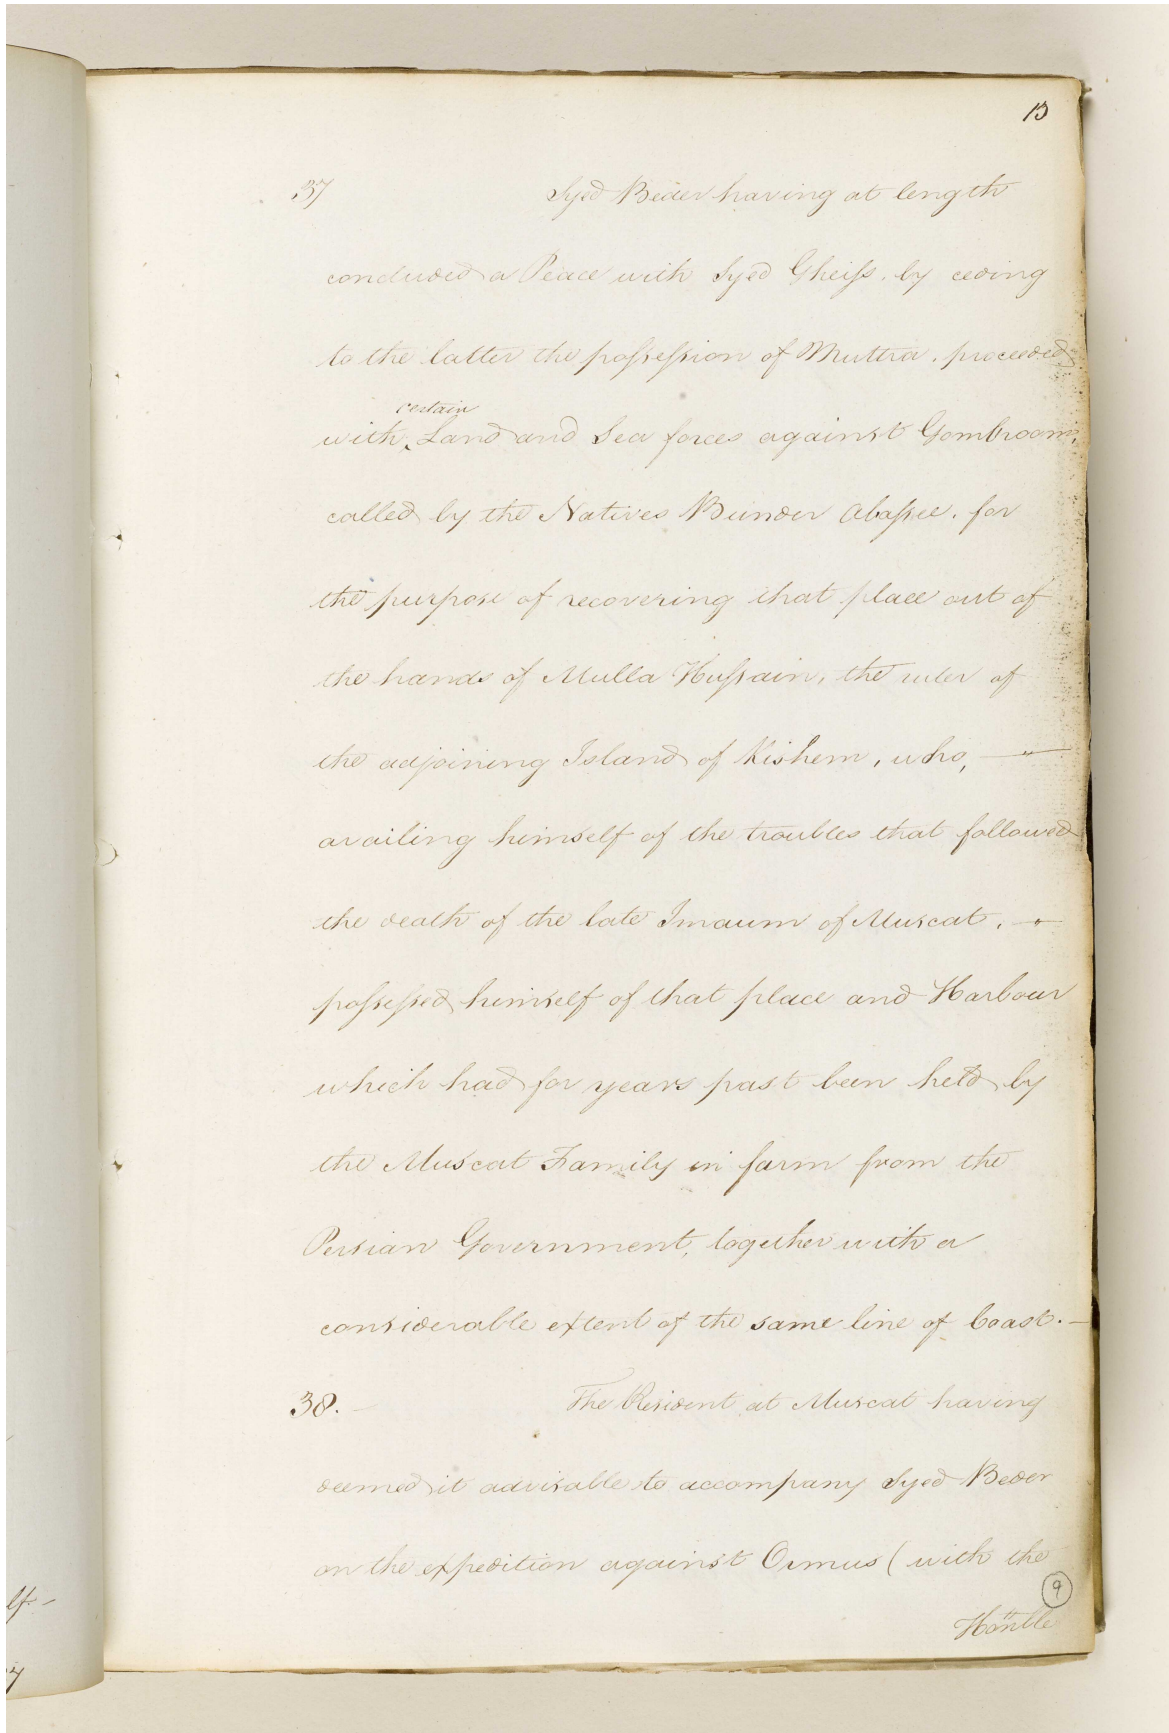 13
37 Syed Beder having at length
concluded a Peace with Syed Gheiss. by ceding
to the latter the possession of Muttra. proceeded
certain
with Land and Sea forces against Gombroom,
called by the Natives Bunder Abassee. for
the purpose of recovering that place out of
the hands of Mulla Hussain, the ruler of
the adjoining Island of Kishem, who, —
availing himself of the troubles that followed
the death of the late Imaum of Muscat. —
possessed himself of that place and Harbour
which had for years past been held by
the Muscat Family in farm from the
Persian Government, together with a
considerable extent of the same line of Coast. —
38. — The Resident at Muscat having
deemed it advisable to accompany Syed Beder
on the expedition against Ormus (with the
9
Honble